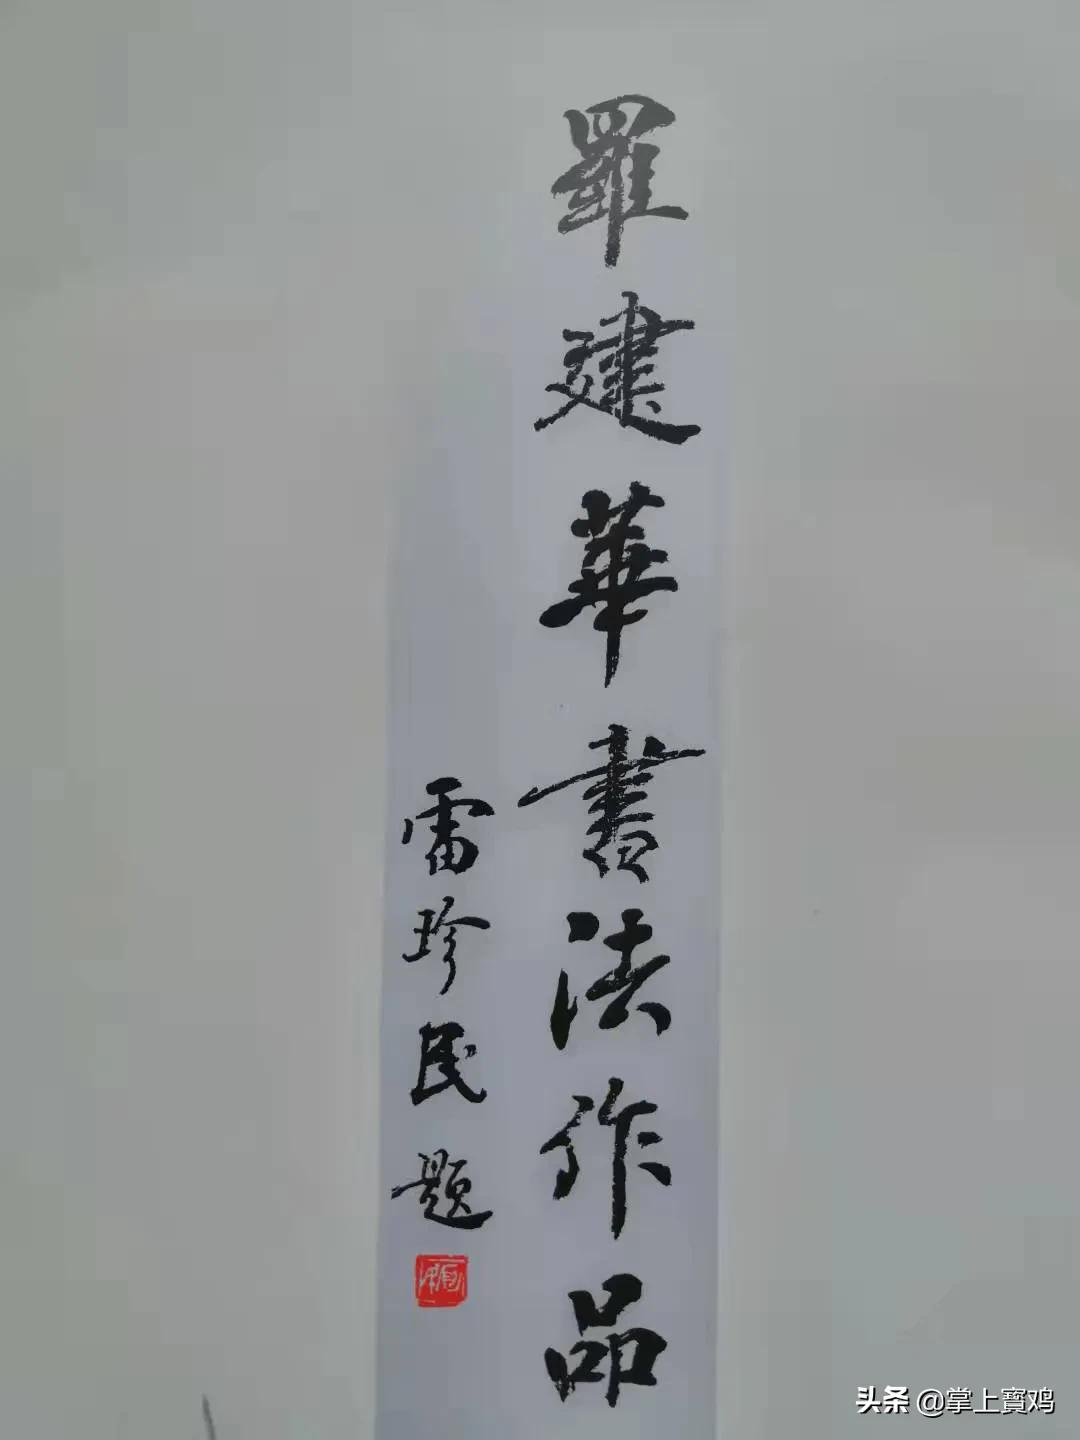 羅建華書法作品
雷珍民题
头条 @掌上寳鸡